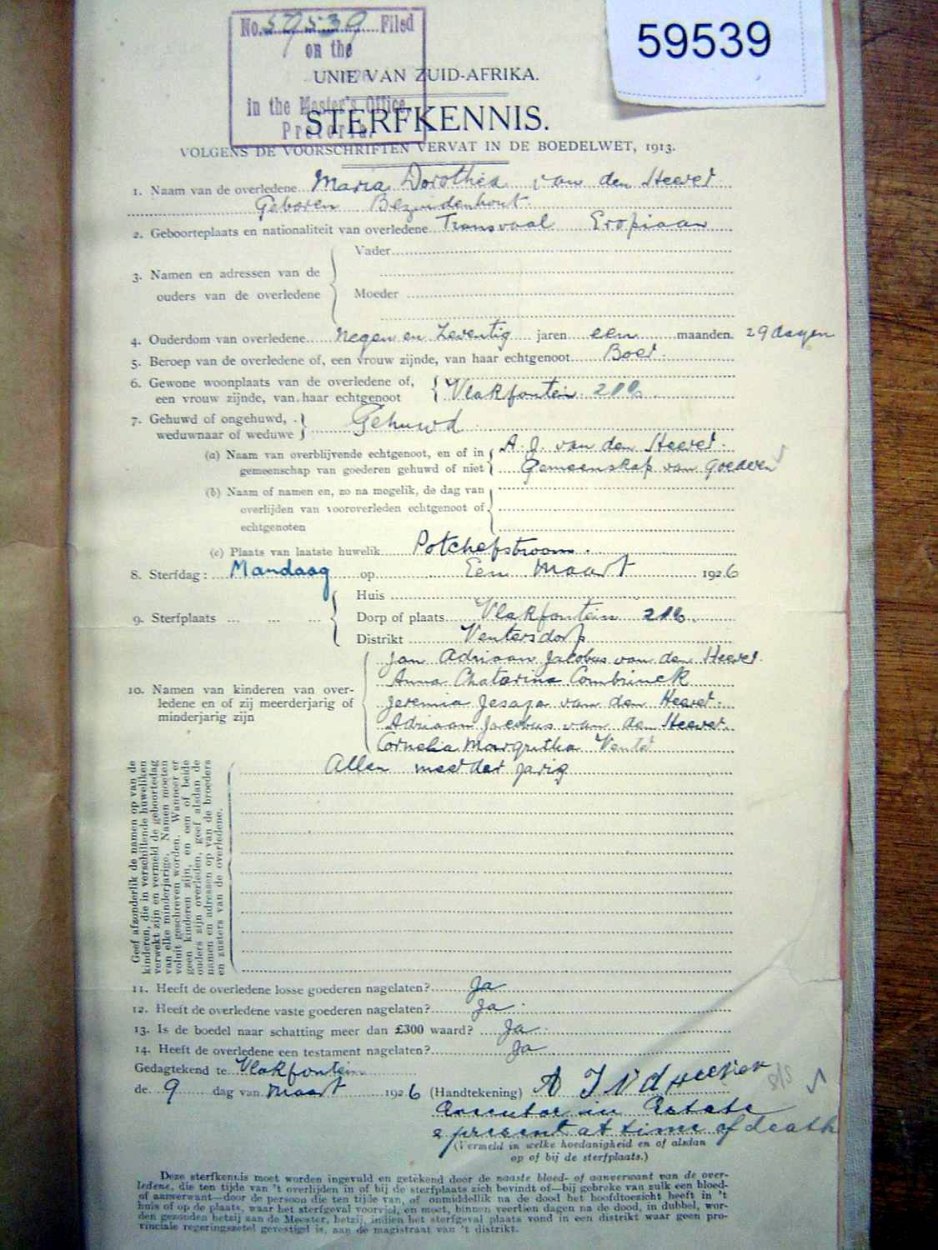 59539
No. 59539 Filed
on the
UNIE VAN ZUID-AFRIKA.
in the Master's Office
Pretoria.
STERFKENNIS.
VOLGENS DE VOORSCHRIFTEN VERVAT IN DE BOEDELWET, 1913.
1. Naam van de overledene Maria Dorothea van den Heever
Geboren Bezuidenhout
2. Geboorteplaats en nationaliteit van overledene Transvaal Eropiaan
3. Namen en adressen van de ouders van de overledene
Vader
Moeder
4. Ouderdom van overledene negen en Zeventig jaren een maanden. 29 dagen
5. Beroep van de overledene of, een vrouw zijnde, van haar echtgenoot Boer.
6. Gewone woonplaats van de overledene of,
een vrouw zijnde, van haar echtgenoot Vlakfontein
7. Gehuwd of ongehuwd,
weduwnaar of weduwe Gehuwd
(a) Naam van overblijvende echtgenoot, en of in A. J. van den Heever.
gemeenschap van goederen gehuwd of niet Gemeenskap van Goederen
(b) Naam of namen en, zo na mogelik, de dag van
overlijden van vooroverleden echtgenoot of
echtgenoten
(c) Plaats van laatste huwelik Potchefstroom.
8. Sterfdag: Mandaag op Een Maart 1926
9. Sterfplaats ... ... ...
Huis
Dorp of plaats Vlakfontein
Distrikt Ventersdorp
10. Namen van kinderen van over-
ledene en of zij meerderjarig of
minderjarig zijn
Jan Adriaan Jacobus van den Heever
Anna Chatarina Combrinck
Jeremia Jesaja van den Heever.
Adriaan Jacobus van den Heever
Cornelia Margritha Venter
Allen meerder jarig
Geef afzonderlik de namen op van de
kinderen, die in verschillende huweliken
verwekt zijn en vermeld de geboortedag
van elke minderjarige. Namen moeten
voluit geschreven worden. Wanneer er
geen kinderen zijn, en een of beide
ouders zijn overleden, geef alsdan de
namen en adressen op van de broeders
en zusters van de overledene.
11. Heeft de overledene losse goederen nagelaten? Ja
12. Heeft de overledene vaste goederen nagelaten? Ja.
13. Is de boedel naar schatting meer dan £300 waard? Ja
14. Heeft de overledene een testament nagelaten? Ja
Gedagtekend te Vlakfontein
de 9 dag van Maart 1926 (Handtekening) A J V d Heever
Executor in Estate
& present at time of death
(Vermeld in welke hoedanigheid en of alsdan
op of bij de sterfplaats.)
Deze sterfkennis moet worden ingevuld en getekend door de naaste bloed- of aanverwant van de over-
ledene, die ten tijde van 't overlijden in of bij de sterfplaats zich bevindt of—bij gebreke van zulk een bloed-
of aanverwant—door de persoon die ten tijde van, of onmiddellik na de dood het hoofdtoezicht heeft in 't
huis of op de plaats, waar het sterfgeval voorviel, en moet, binnen veertien dagen na de dood, in dubbel, wor-
den gezonden hetzij aan de Meester, hetzij, indien het sterfgeval plaats vond in een distrikt waar geen pro-
vinciale regeringszetel gevestigd is, aan de magistraat van 't distrikt.